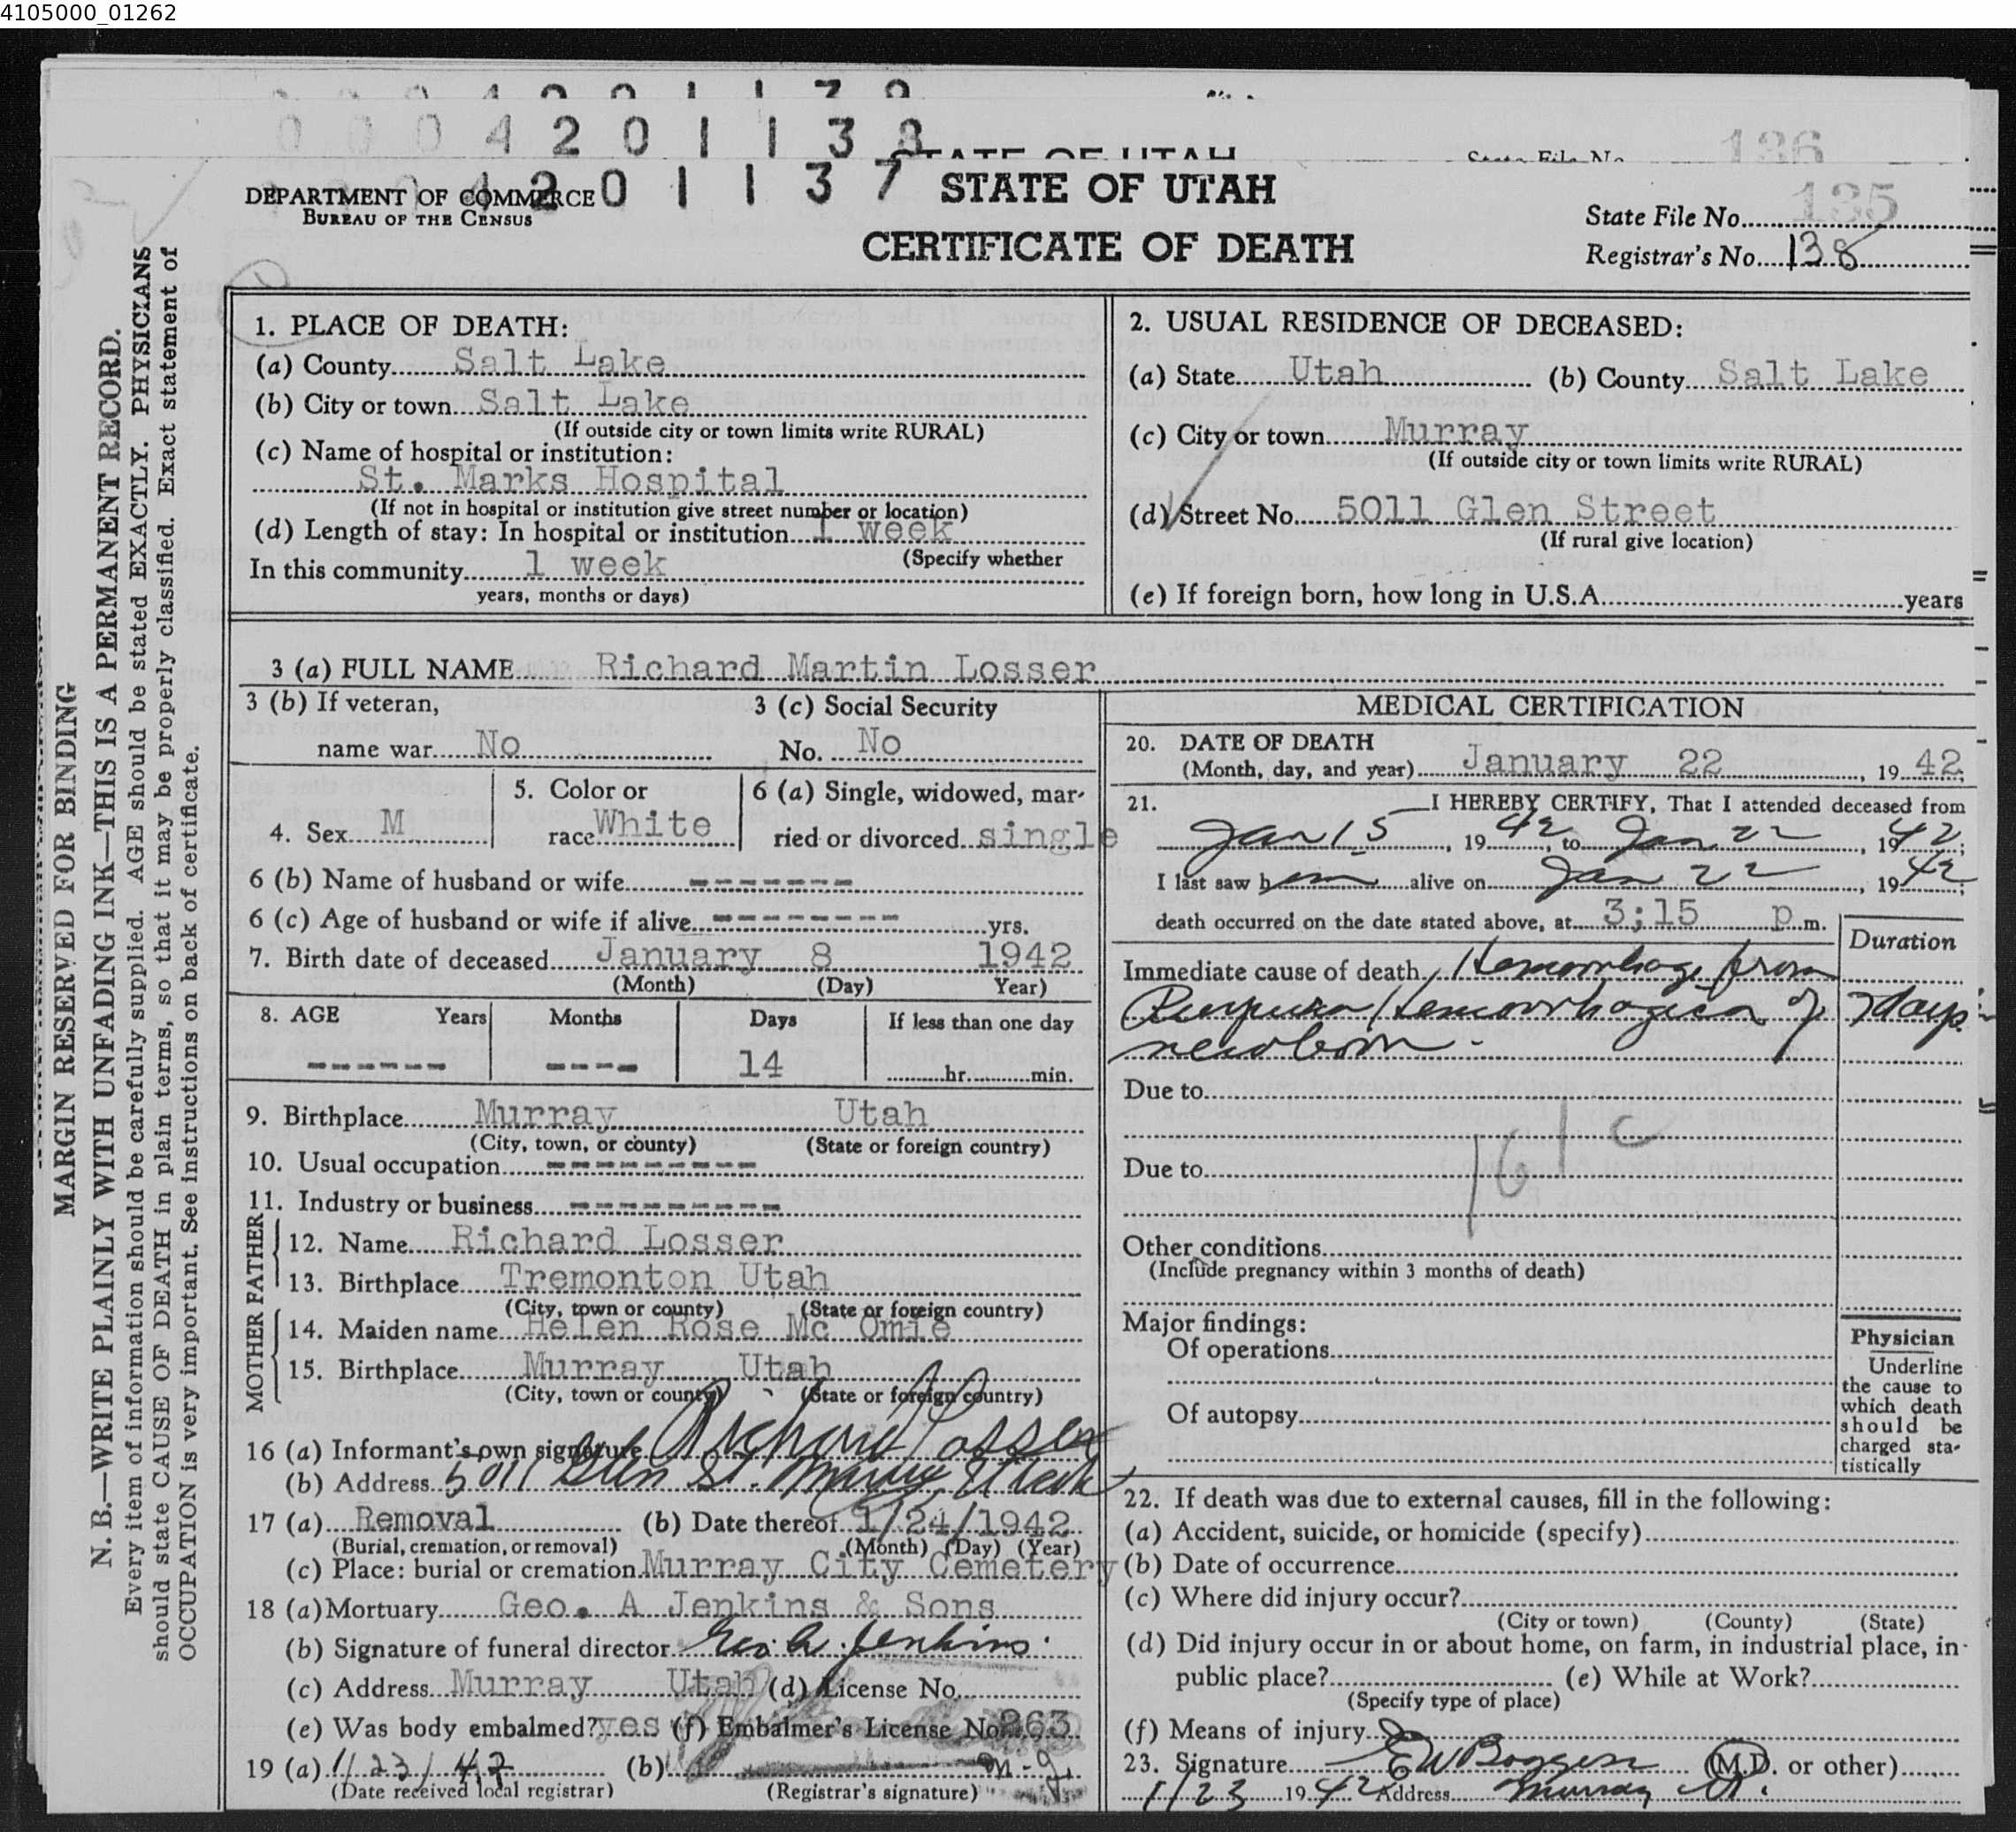 4105000_01262
0 0 0 4 2 0 1 1 3 8
STATE OF UTAH
State File No. 136
4 2 0 1 1 3 7
DEPARTMENT OF COMMERCE
BUREAU OF THE CENSUS
STATE OF UTAH
CERTIFICATE OF DEATH
State File No. 135
Registrar's No. 138
MARGIN RESERVED FOR BINDING
N. B.—WRITE PLAINLY WITH UNFADING INK—THIS IS A PERMANENT RECORD.
Every item of information should be carefully supplied. AGE should be stated EXACTLY. PHYSICIANS
should state CAUSE OF DEATH in plain terms, so that it may be properly classified. Exact statement of
OCCUPATION is very important. See instructions on back of certificate.
1. PLACE OF DEATH:
(a) County Salt Lake
(b) City or town Salt Lake
(If outside city or town limits write RURAL)
(c) Name of hospital or institution:
St. Marks Hospital
(If not in hospital or institution give street number or location)
(d) Length of stay: In hospital or institution 1 week
(Specify whether
In this community 1 week
years, months or days)
2. USUAL RESIDENCE OF DECEASED:
(a) State Utah (b) County Salt Lake
(c) City or town Murray
(If outside city or town limits write RURAL)
(d) Street No. 5011 Glen Street
(If rural give location)
(e) If foreign born, how long in U.S.A. years
3 (a) FULL NAME Richard Martin Losser
3 (b) If veteran, 3 (c) Social Security
name war No No. No
4. Sex M
5. Color or
race White
6 (a) Single, widowed, mar-
ried or divorced single
6 (b) Name of husband or wife -------
6 (c) Age of husband or wife if alive -------- yrs.
7. Birth date of deceased January 8 1942
(Month) (Day) Year)
8. AGE Years Months Days If less than one day
------ ---- 14 hr. min.
9. Birthplace Murray Utah
(City, town, or county) (State or foreign country)
10. Usual occupation ---------
11. Industry or business ---------
FATHER
12. Name Richard Losser
13. Birthplace Tremonton Utah
(City, town or county) (State or foreign country)
MOTHER
14. Maiden name Helen Rose Mc Omie
15. Birthplace Murray Utah
(City, town or county) (State or foreign country)
16 (a) Informant's own signature Richard Losser
(b) Address 5011 Glen St. Murray Utah
17 (a) Removal (b) Date thereof 1/24/1942
(Burial, cremation, or removal) (Month) (Day) (Year)
(c) Place: burial or cremation Murray City Cemetery
18 (a) Mortuary Geo. A Jenkins & Sons
(b) Signature of funeral director Geo. A. Jenkins
(c) Address Murray Utah (d) License No.
(e) Was body embalmed? yes (f) Embalmer's License No. 263
19 (a) 1/23/42 (b)
(Date received local registrar) (Registrar's signature)
MEDICAL CERTIFICATION
20. DATE OF DEATH
(Month, day, and year) January 22, 19 42;
21. I HEREBY CERTIFY, That I attended deceased from
Jan 15, 19 42, to Jan 22, 19 42;
I last saw h im alive on Jan 22, 19 42;
death occurred on the date stated above, at 3;15 p m.
Duration
Immediate cause of death Hemorrhage from
Purpura Hemorrhagica of 7 days
newborn.
Due to
161c
Due to
Other conditions
(Include pregnancy within 3 months of death)
Major findings:
Of operations
Of autopsy
Physician
Underline
the cause to
which death
should be
charged sta-
tistically
22. If death was due to external causes, fill in the following:
(a) Accident, suicide, or homicide (specify)
(b) Date of occurrence
(c) Where did injury occur?
(City or town) (County) (State)
(d) Did injury occur in or about home, on farm, in industrial place, in
public place? (e) While at Work?
(Specify type of place)
(f) Means of injury
23. Signature E W Boggess (M.D. or other)
1/23 19 42 Address Murray Ut.